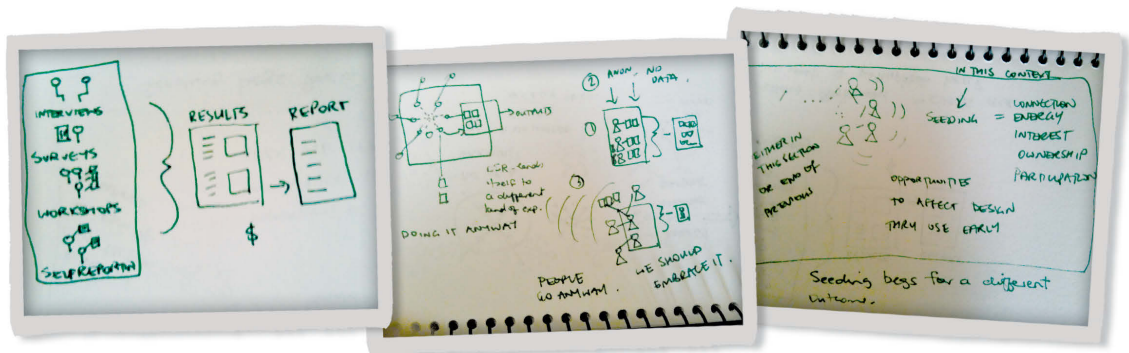 INTERVIEWS
SURVEYS
WORKSHOPS
SELFREPORTIN
RESULTS
REPORT
$
→OUTPUTS
② ANON. NO
DATA.
①
③
itself to
a different
kind of exp.
DOING IT ANYWAY
PEOPLE
GO ANYWAY.
WE SHOULD
EMBRACE IT.
IN THIS CONTEXT
SEEDING =
CONNECTION
ENERGY
INTEREST
OWNERSHIP
PARTICIPATION
EITHER IN
THIS SECTION
OR END OF
PREVIOUS
OPPORTUNITIES
TO AFFECT DESIGN
THRU USE EARLY
Seeding begs for a different
outcome.